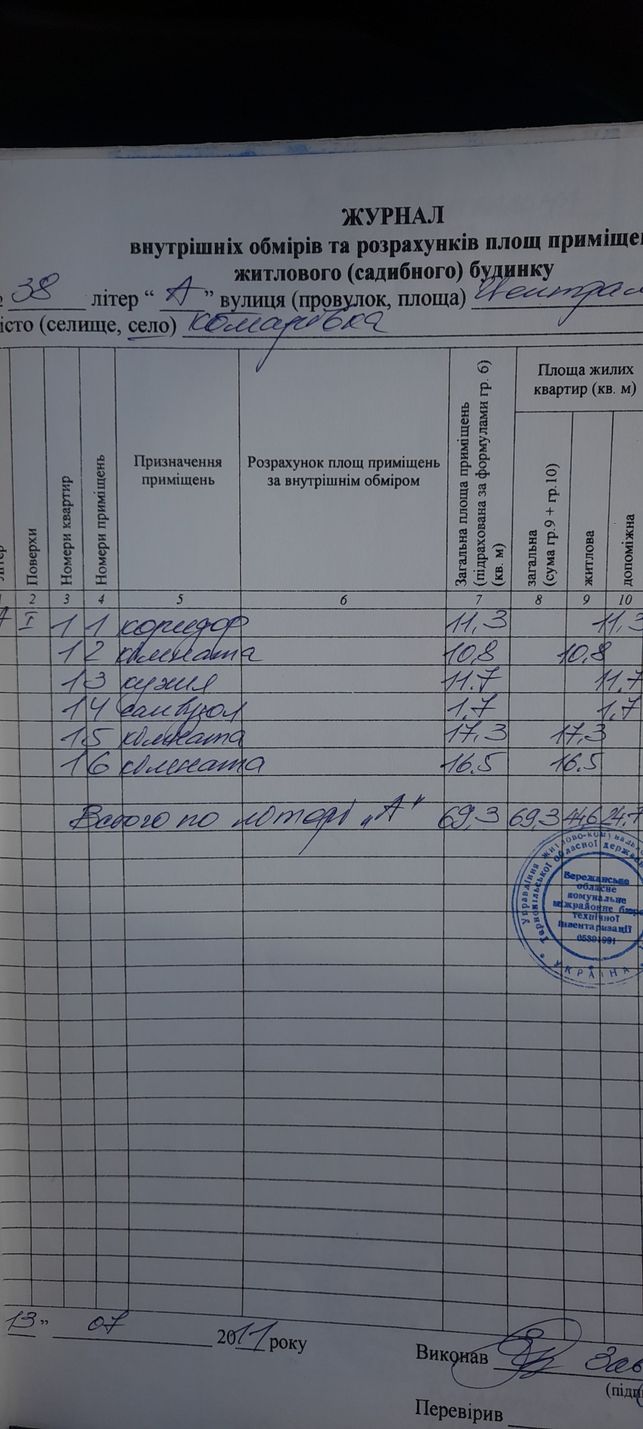 ЖУРНАЛ
внутрішніх обмірів та розрахунків площ приміщен
житлового (садибного) будинку
38 літер “ А ” вулиця (провулок, площа) Централ
істо (селище, село) Комарівка
літер
Поверхи
Номери квартир
Номери приміщень
Призначення приміщень
Розрахунок площ приміщень за внутрішнім обміром
Загальна площа приміщень (підрахована за формулами гр. 6) (кв. м)
Площа жилих квартир (кв. м)
загальна (сума гр.9 + гр.10)
житлова
допоміжна
1 2 3 4 5 6 7 8 9 10
А I 1 1 коридор 11,3 11,3
1 2 кімната 10,8 10,8
1 3 кухня 11.7 11,7
1 4 санвузол 1,7 1,7
1 5 кімната 17,3 17,3
1 6 кімната 16.5 16.5
Всього по літері „А“ 69,3 69,3 44,6 24,7
Управління житлово-комунальн
Тернопільської обласної держав
Бережанське
обласне
комунальне
міжрайонне бюро
технічної
інвентаризації
УКРАЇНА
13 ” 07 2011 року
Виконав Зав
(підпи
Перевірив